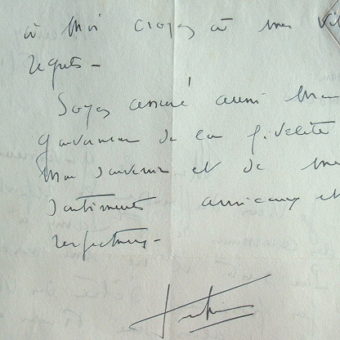 à moi croyez à mes
regrets –
Soyez assuré aussi Mon
Gouverneur de la fidélité
mon souvenir et de mes
sentiments amicaux et
respectueux –